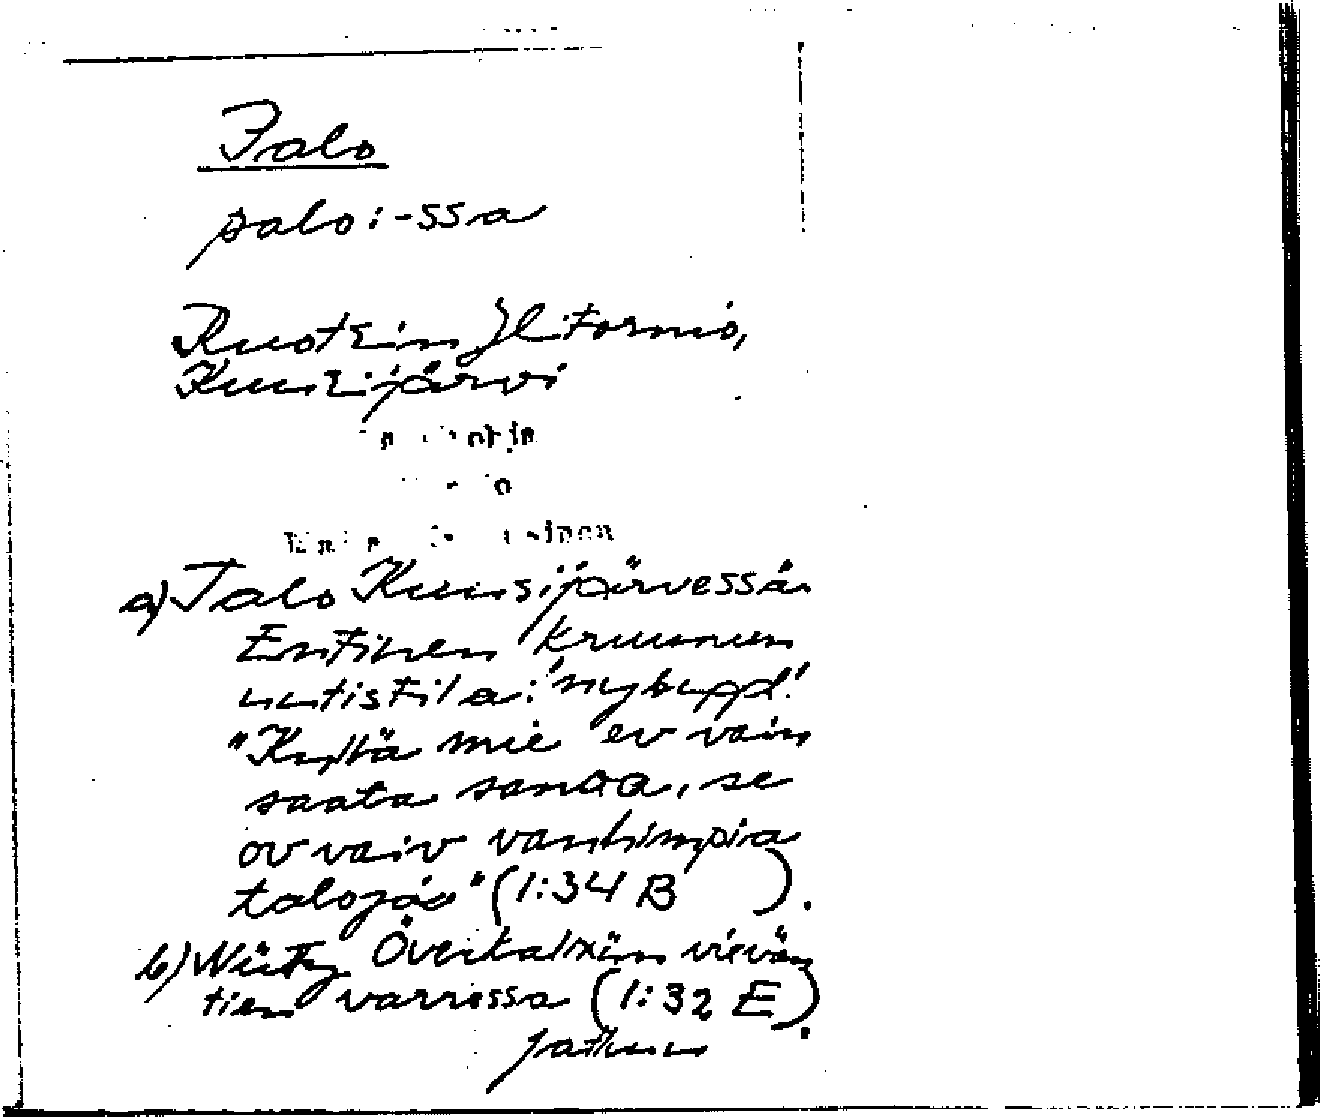 Palo
palo:-ssa
Ruotsin Ylitornio,
Kuusijärvi
a) Talo Kuusijärvessä.
Entinen kruunun
uutistila: 'nybygd'.
"Kyllä mie ev vain
saata sanoa, se
ov vaiv vanhimpia
taloja" (1:34 B ).
b) Niitty Överkalixiin vievän
tien varressa (1:32 E).
jatkuu